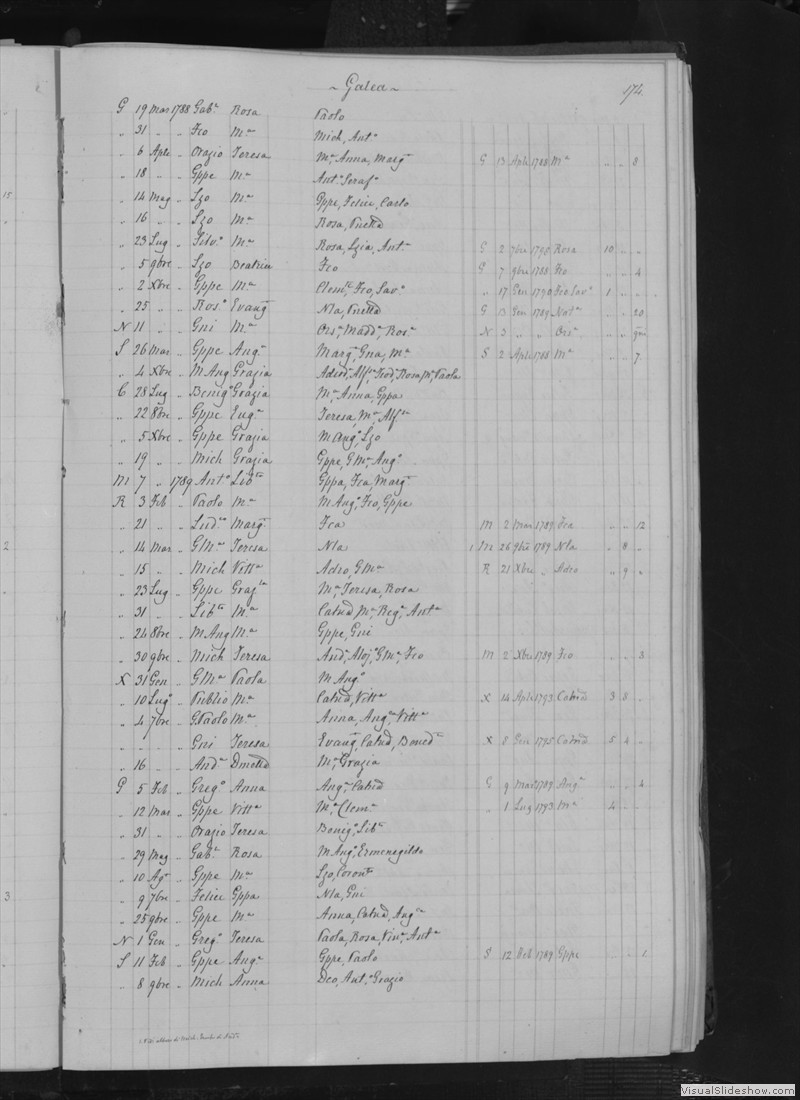 ~ Galea ~ 174.
G 19 Mar 1788 Gab.e Rosa Paolo
„ 31 „ „ Fco M.a Mich, Ant.a
„ 6 Aple „ Orazio Teresa M.a Anna, Marg.a G 13 Aple 1788 M.a „ „ 8
„ 18 „ „ Gppe M.a Ant.a Seraf.a
15 „ 14 Mag „ Szo M.a Gppe, Felice, Carlo
„ 16 „ „ Szo M.a Rosa,
„ 23 Lug „ M.a Rosa, Lzia, Ant.a G 2 7bre 1798 Rosa 10 „ „
„ 5 9bre „ Szo Beatrice Fco G 7 9bre 1788 Fco „ „ 4
„ 2 Xbre „ Gppe M.a Clem.te, Fco, Sav.o „ 17 Gen 1790 Fco Sav.o 1 „ „
„ 25 „ „ Ros.o Evang.a Nla, G 13 Gen 1789 „ „ 20
N 11 „ „ Gni M.a Ors.a, Madd.a, Ros.a N 3 „ „ Ors.a „ „
S 26 Mar „ Gppe Ang.a Marg.a, Gna, M.a S 2 Aple 1788 M.a „ „ 7
„ 4 Xbre „ M Ang Grazia Adeod, Alf.o, Teod, Rosa, M.a, Paola
C 28 Lug „ Benig.o Grazia M.a, Anna, Gppa
„ 22 8bre „ Gppe Eug.a Teresa, M.a, Alf.sa
„ 5 Xbre „ Gppe Grazia M Ang.o, Szo
„ 19 „ „ Mich Grazia Gppe, G M.a, Ang.o
M 7 „ 1789 Ant.o Lib.ta Gppa, Fca, Marg.a
R 3 Feb „ Paolo M.a M Ang.o, Fco, Gppe
„ 21 „ „ Lud.co Marg.a Fca M 2 Mar 1789 Fca „ „ 12
2 „ 14 Mar „ G M.a Teresa Nla 1 M 26 9bre 1789 Nla „ 8 „
„ 15 „ „ Mich Vitt.a Adeo, G M.a R 21 Xbre „ Adeo „ 9 „
„ 23 Lug „ Gppe Graz.la M.a, Teresa, Rosa
„ 31 „ „ Lib.to M.a Catnd, M.a, Reg.a, Ant.a
„ 24 8bre „ M Ang M.a Gppe, Gni
„ 30 9bre „ Mich Teresa And.a, Aloj.o, G M.a, Fco M 2 Xbre 1789 Fco „ „ 3
X 31 Gen „ G M.a Paola M Ang.o
„ 10 Lug.o „ Publio M.a Catnd, Vitt.a X 14 Aple 1793 Catnd 3 8 „
„ 4 7bre „ G.Paolo M.a Anna, Ang.a, Vitt.a
„ „ „ Gni Teresa Evang.a, Catnd, Bened.ta X 8 Gen 1795 Catnd 5 4 „
„ 16 „ „ And.a Dmetid M.a, Grazia
G 5 Feb „ Greg.o Anna Ang.a, Catnd G 9 Mar 1789 Ang.a „ „ 4
„ 12 Mar „ Gppe Vitt.a M.a, Clem.a „ 1 Lug 1793 M.a 4 „ „
„ 31 „ „ Orazio Teresa Benig.o, Lib.ta
„ 29 Mag „ Gab.e Rosa M Ang.o, Ermenegilda
„ 10 Ag.o „ Gppe M.a Szo,
3 „ 9 7bre „ Felice Gppa Nla, Gni
„ 25 9bre „ Gppe M.a Anna, Catnd, Aug.a
N 1 Gen „ Greg.o Teresa Paola, Rosa, Vin.a, Ant.a
S 11 Feb „ Gppe Ang.a Gppe, Paolo S 12 Feb 1789 Gppe „ „ 1
„ 8 9bre „ Mich Anna Dco, Ant.o, Grazio
VisualSlideshow.com